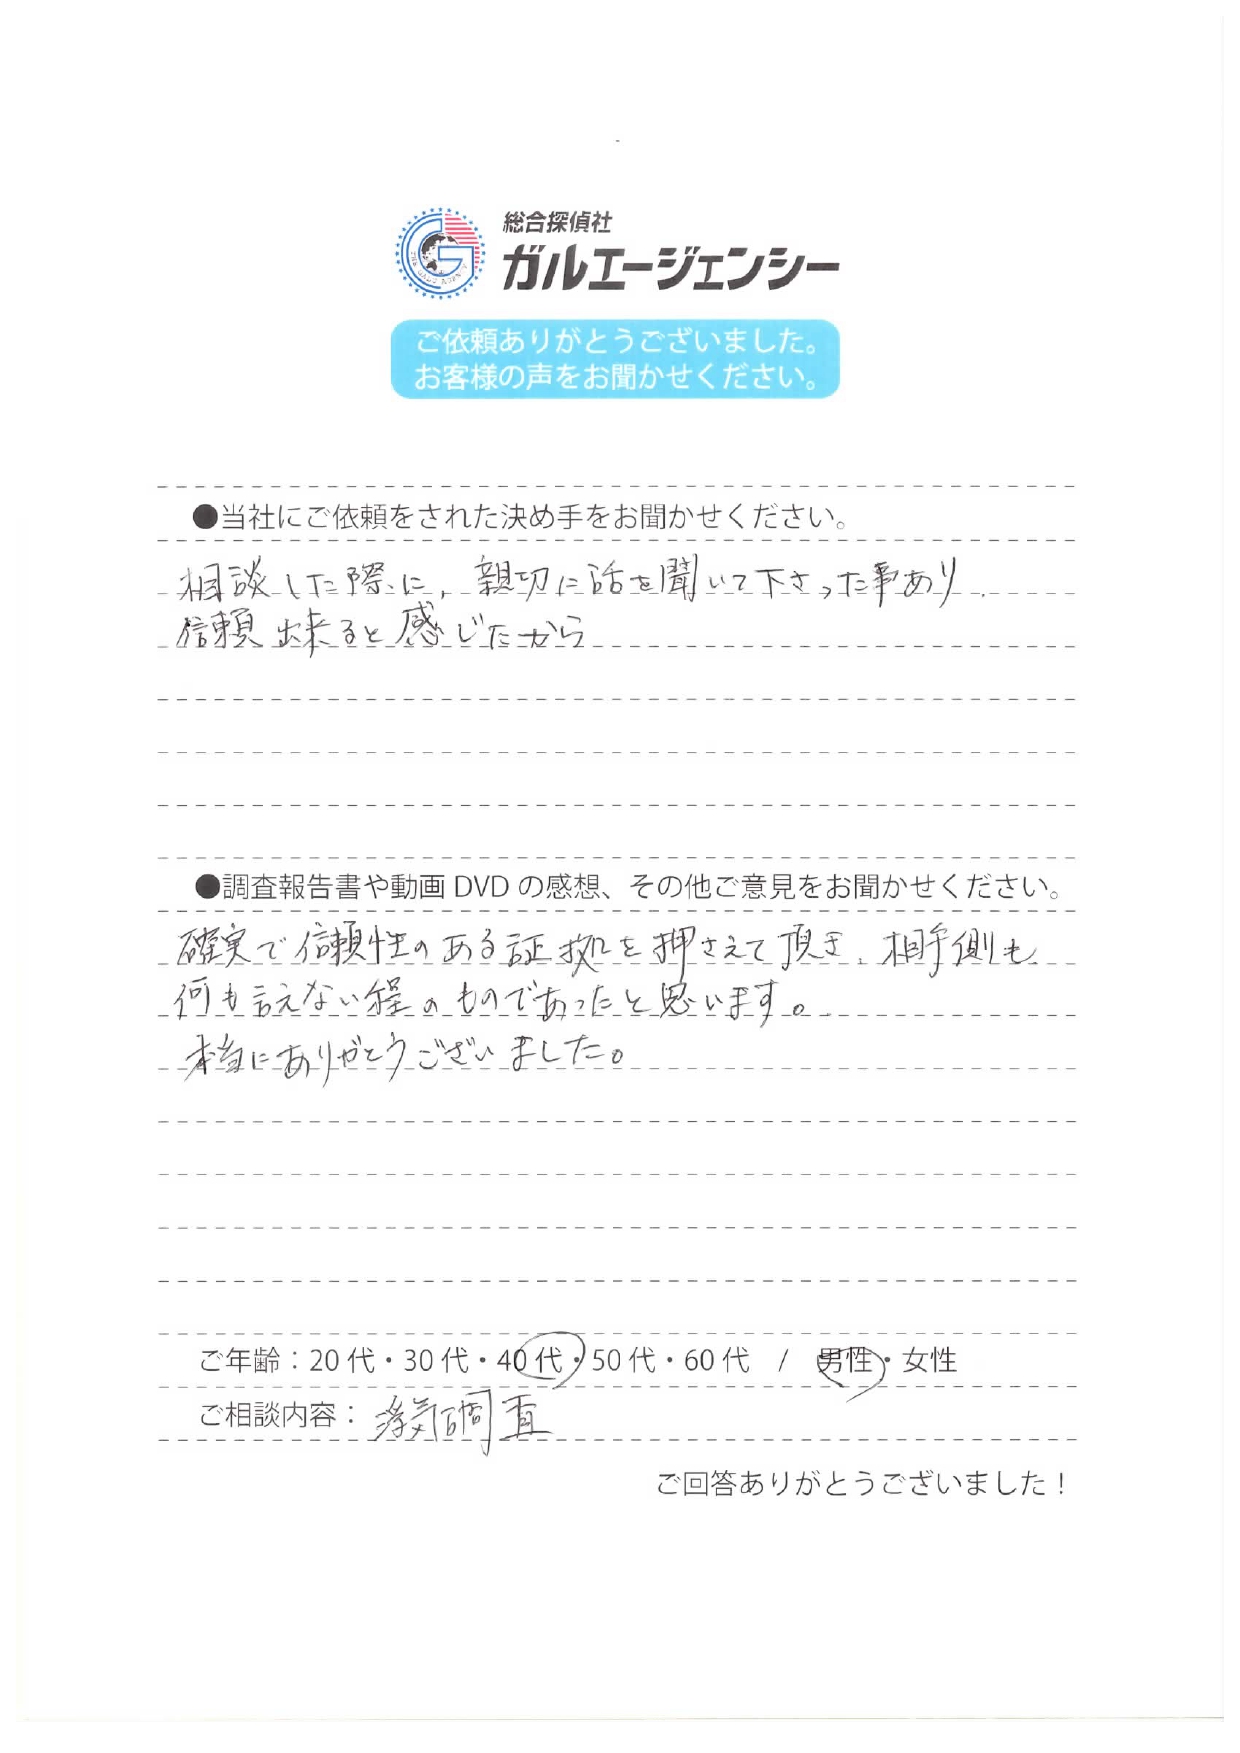 総合探偵社
ガルエージェンシー
ご依頼ありがとうございました。
お客様の声をお聞かせください。
●当社にご依頼をされた決め手をお聞かせください。
相談した際に、親切に話を聞いて下さった事あり、
信頼出来ると感じたから
●調査報告書や動画DVDの感想、その他ご意見をお聞かせください。
確実で信頼性のある証拠を押さえて頂き、相手側も
何も言えない程のものであったと思います。
本当にありがとうございました。
ご年齢：20代・30代・40代・50代・60代 / 男性・女性
ご相談内容：浮気調査
ご回答ありがとうございました！